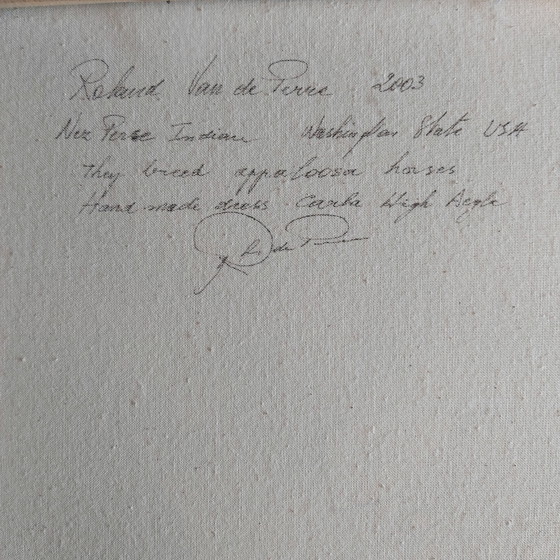 Roland Van de Perre 2003
Nez Perse Indian Washington State USA
They breed appaloosa horses
Hand made dress Carla High Aegle